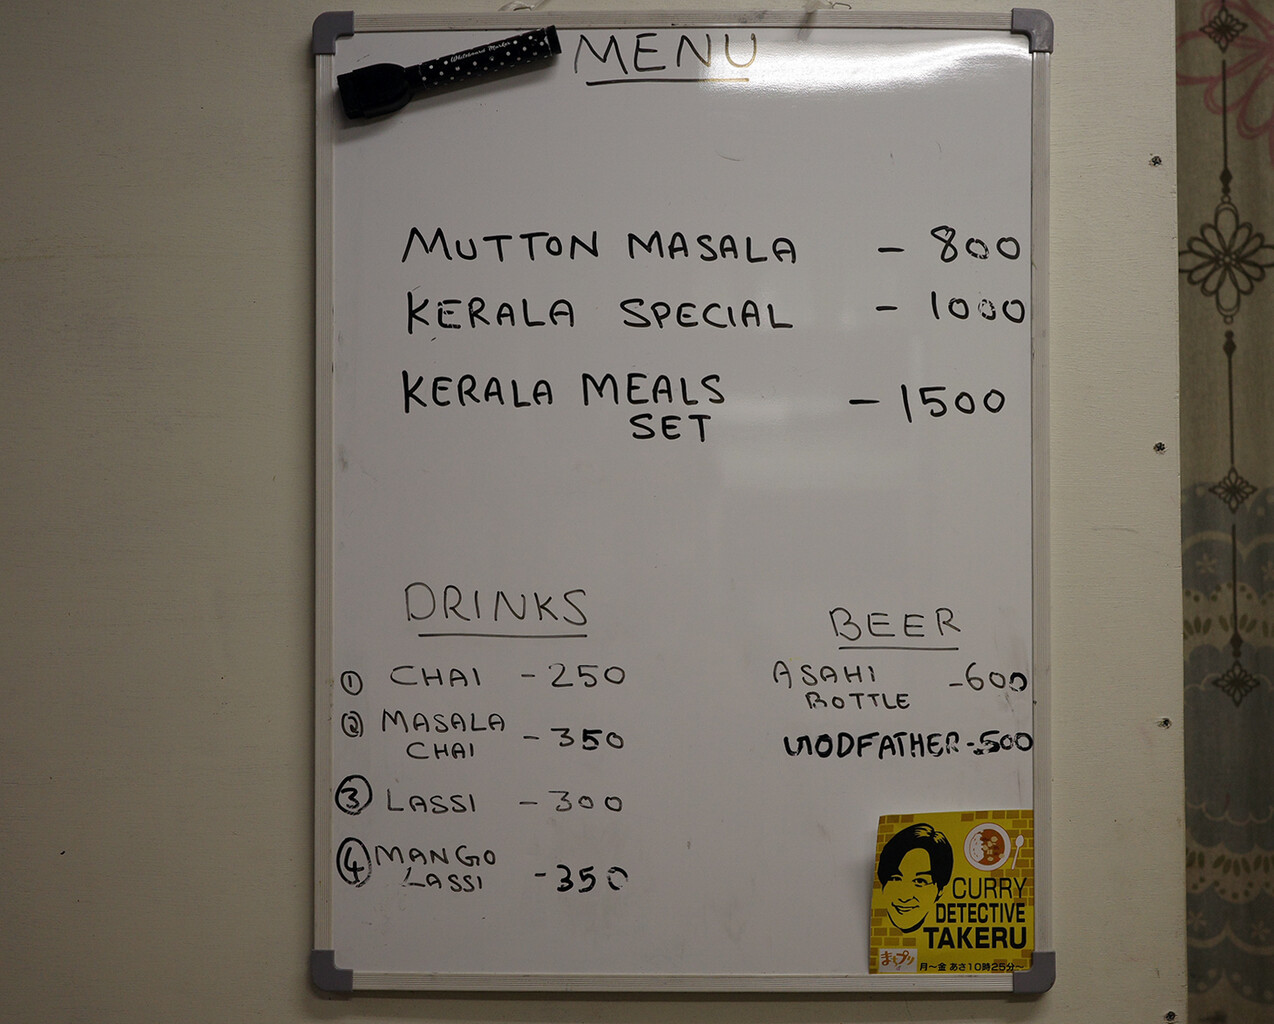 Whiteboard Marker
MENU
MUTTON MASALA - 800
KERALA SPECIAL - 1000
KERALA MEALS - 1500
SET
DRINKS
① CHAI - 250
② MASALA
CHAI - 350
③ LASSI - 300
④ MANGO
LASSI - 350
BEER
ASAHI - 600
BOTTLE
GODFATHER - 500
CURRY
DETECTIVE
TAKERU
ましプリ
月~金 あさ10時25分~